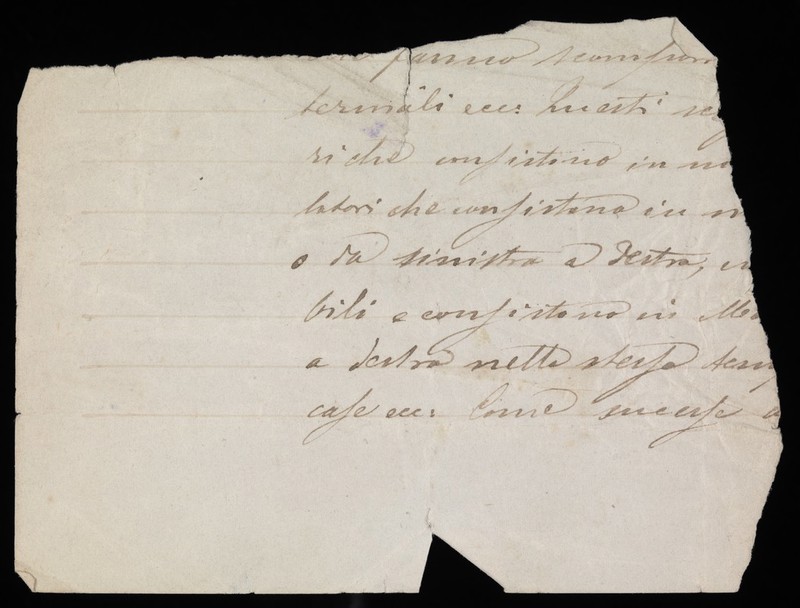 fanno scompor
termali ecc: Questi seg
ri che consistono in
latori che consistono in
o da sinistra a destra, in
bili e consistono in Mo
a destra nello stesso temp
case ecc: Come successe a